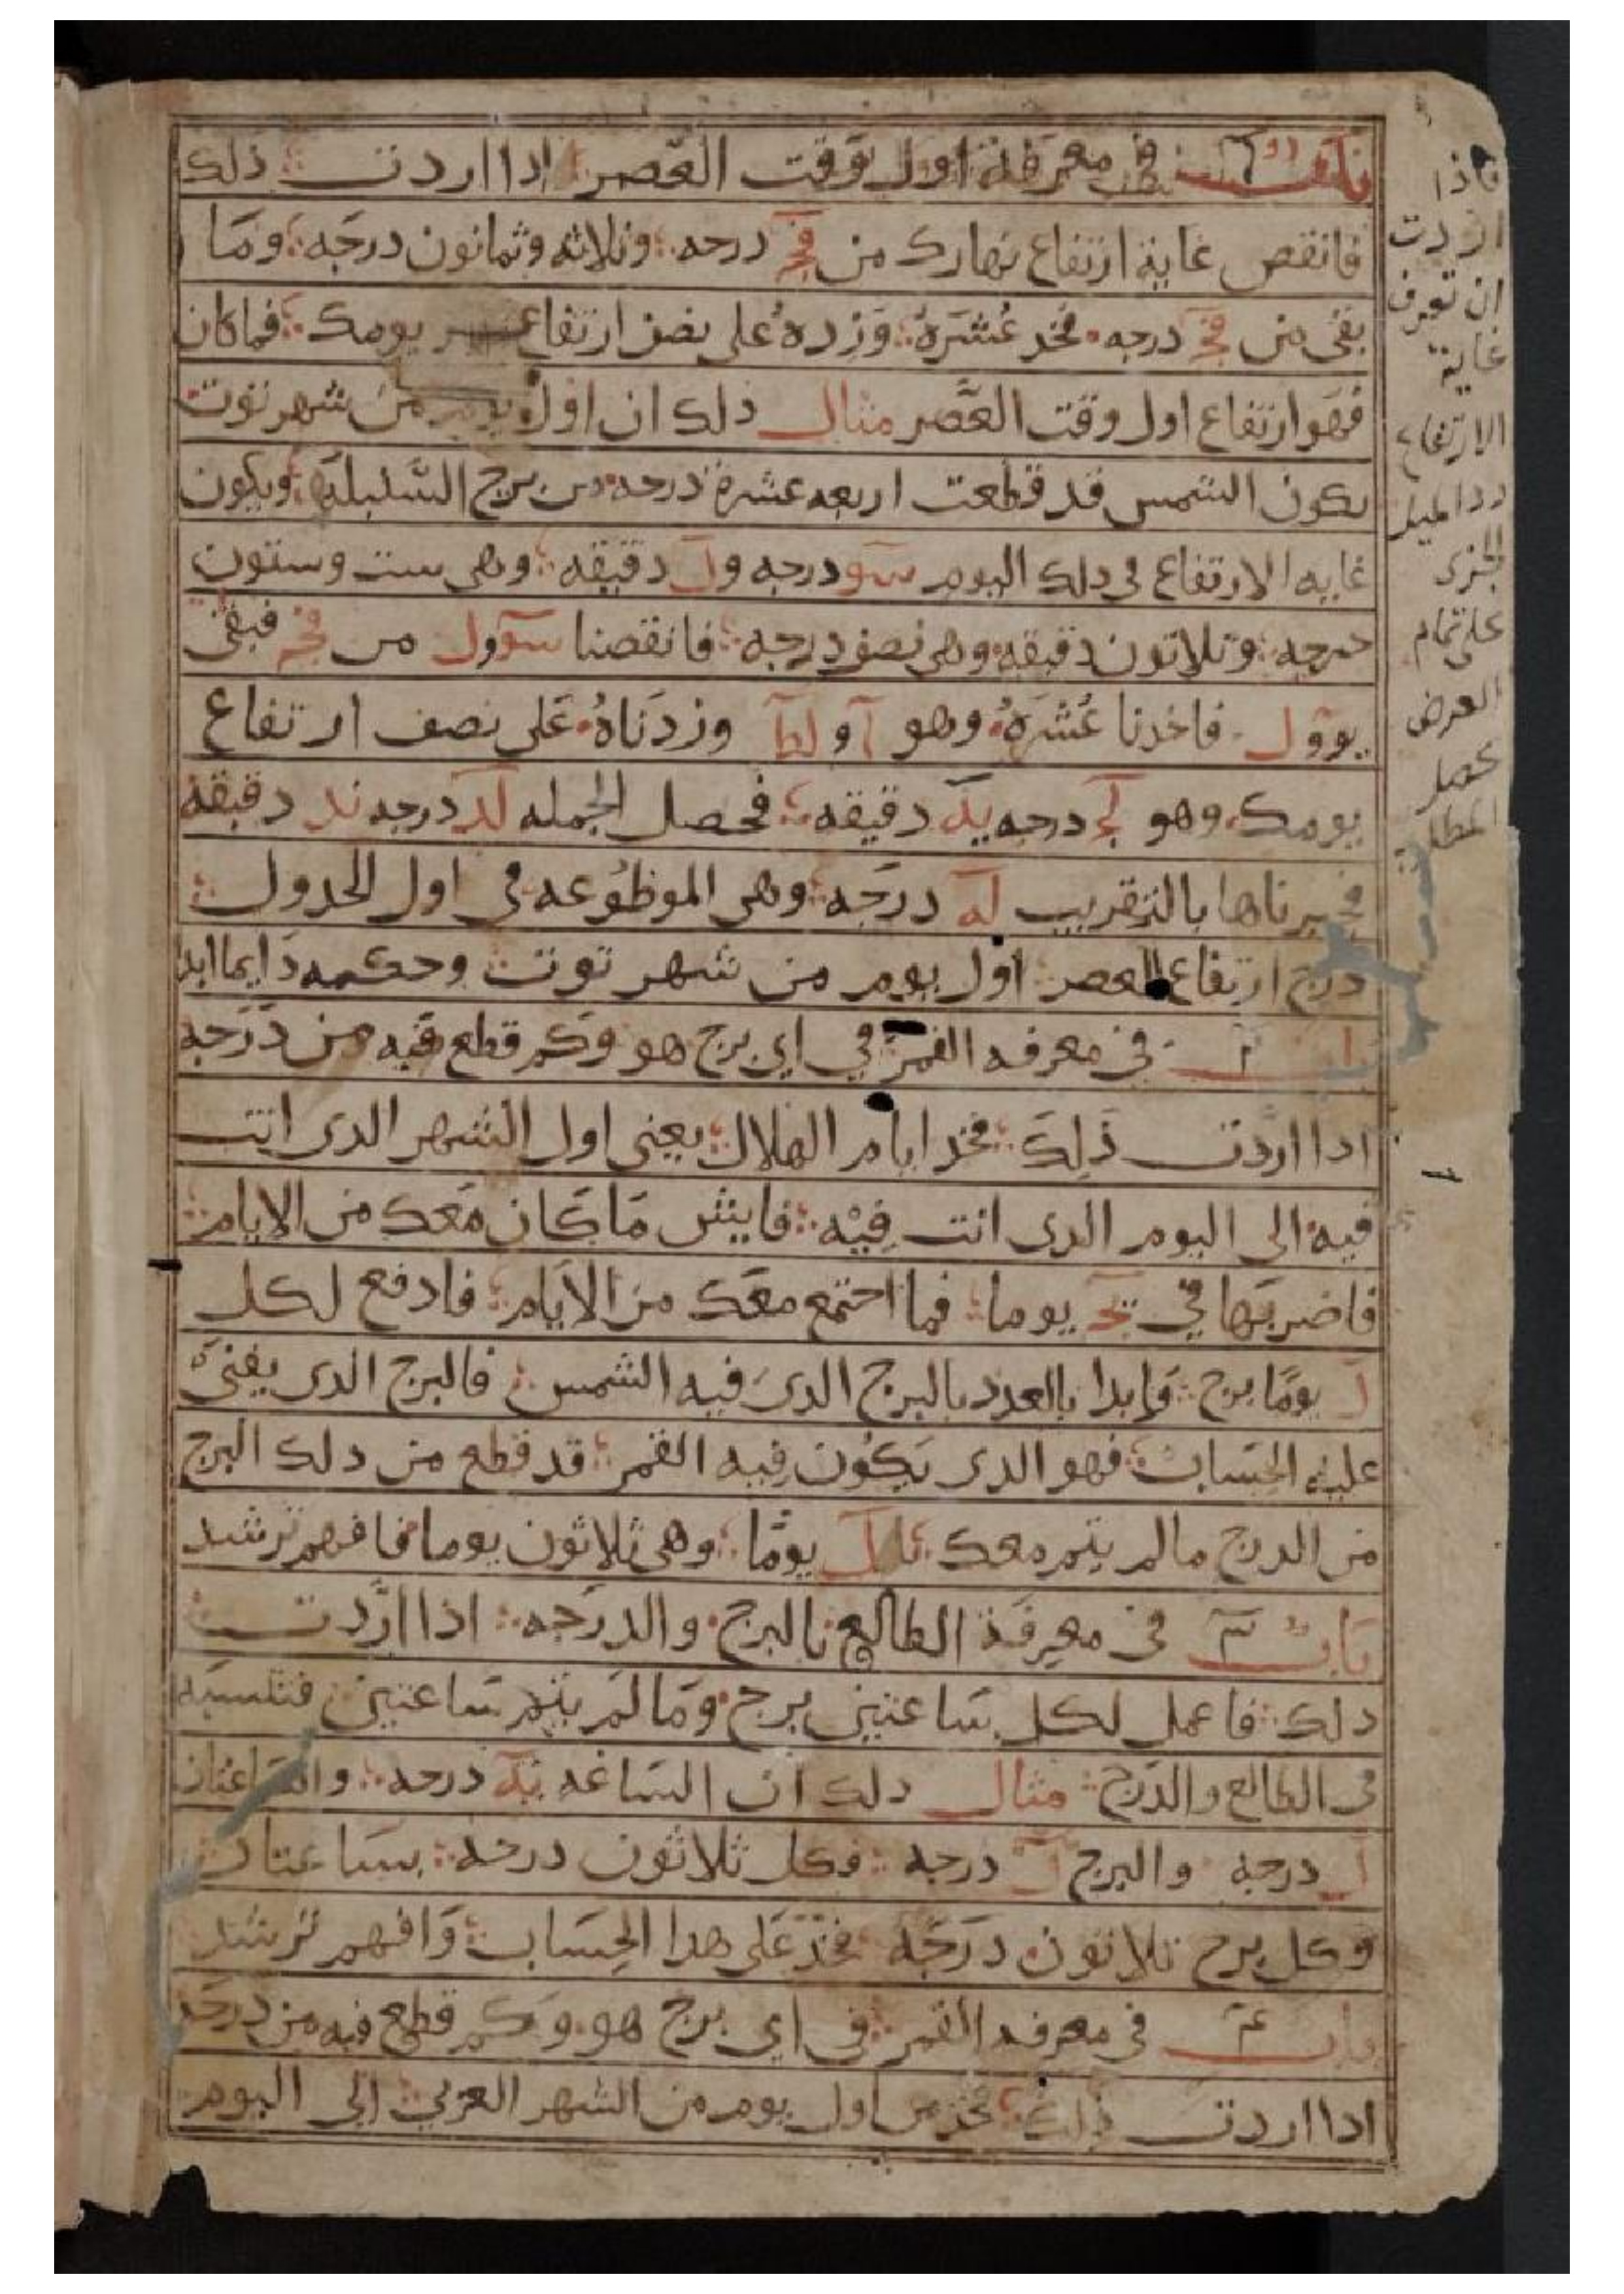 باب ١ في معرفة اول وقت العصر اذا اردت ذلك
فانقص غاية ارتفاع نهارك من فج درجه وثلاثه وثمانون درجه وما
بقى من فج درجه فخد عُشرهُ وزدهُ على نصف ارتفاع يومك فماكان
فهو ارتفاع اول وقت العصر مثال ذلك ان اول يوم من شهر توت
تكون الشمس قد قطعت اربعه عشرة درجه من برج السنبلة ويكون
غايه الارتفاع في دلك اليوم سو درجه ول دقيقه وهى ست وستون
درجه وتلاتون دقيقه وهى نصف درجه فانقصنا سو ول من فج فبقى
يو ول فاخدنا عُشرهُ وهو ا و لط وزدناهُ على نصف ارتفاع
يومك وهو لج درجه يه دقيقه فحصل الجمله لد درجه ند دقيقه
فجبرناها بالتقريب له درجه وهى الموظوعه في اول الجدول
درج ارتفاع العصر اول يوم من شهر توت وحكمه دايما ابدا
باب ٢ في معرفه القمر في اي برج هو وكم قطع فيه من درجه
ادا اردت ذلك فخد ايام الهلال يعنى اول الشهر الدى انت
فيه الى اليوم الدى انت فيه فايش ما كان معك من الايام
فاضربها في يج يوما فما اجتمع معك من الايام فادفع لكل
ل يومًا برج وابدا بالعدد بالبرج الدى فيه الشمس فالبرج الدى يفنى
عليه الحساب فهو الدى يكون فيه القمر قد قطع من دلك البرج
من الدرج مالم يتم معك ل يومًا وهى ثلاثون يوما فافهم ترشد
باب ٣ في معرفة الطالع بالبرج والدرجه اذا اردت
دلك فاعمل لكل ساعتين برج وما لم يتم ساعتين فتنسبه
في الطالع والدرج مثال دلك ان الساعه يه درجه والساعتان
ل درجه والبرج ل درجه فكل ثلاثون درجه بساعتان
وكل برج تلاتون درجه فخد على هدا الحساب وافهم ترشد
باب ٤ في معرفه القمر في اي برج هو وكم قطع فيه من درجه
ادا اردت ذلك فخد من اول يوم من الشهر العربي الى اليوم
فاذا
اردت
ان تعرف
غاية
الارتفاع
زد الميل
الجزى
على تمام
العرض
يحصل
المطلوب